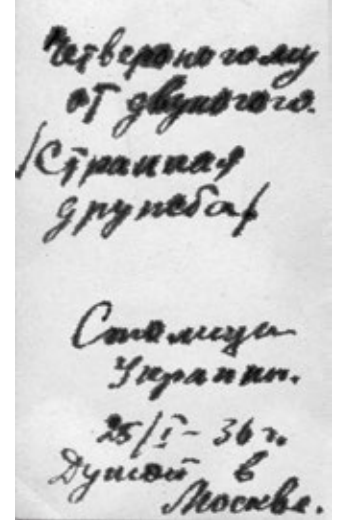 Четвероногому
от двуногого.
/Странная
дружба/
Столица
Украины.
25/I - 36 г.
Душой в
Москве.